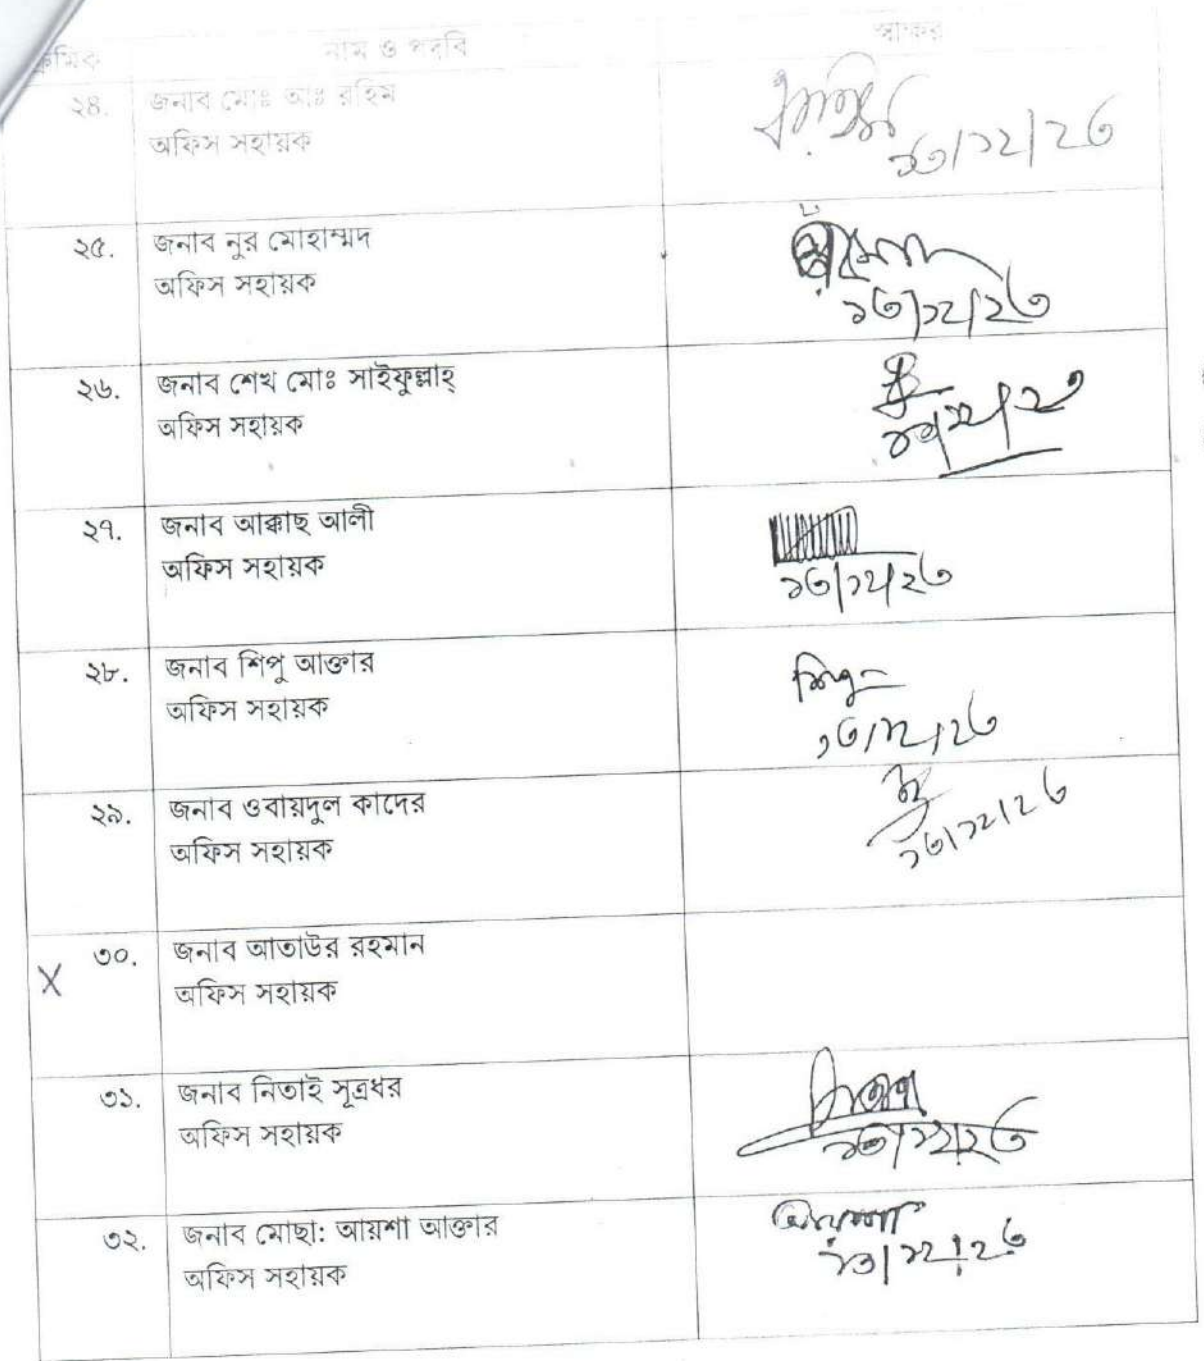 ক্রমিক নাম ও পদবি স্বাক্ষর
২৪. জনাব মোঃ আঃ রহিম
অফিস সহায়ক
১৩/১২/২৩
২৫. জনাব নুর মোহাম্মদ
অফিস সহায়ক
১৩/১২/২৩
২৬. জনাব শেখ মোঃ সাইফুল্লাহ্
অফিস সহায়ক
২৭. জনাব আক্কাছ আলী
অফিস সহায়ক
১৩/১২/২৩
২৮. জনাব শিপু আক্তার
শিপু
অফিস সহায়ক
১৩/১২/২৩
২৯. জনাব ওবায়দুল কাদের
অফিস সহায়ক
১৩/১২/২৩
X ৩০. জনাব আতাউর রহমান
অফিস সহায়ক
৩১. জনাব নিতাই সূত্রধর
অফিস সহায়ক
১৩/১২/২৩
৩২. জনাব মোছা: আয়শা আক্তার
আয়শা
অফিস সহায়ক
১৩/১২/২৩